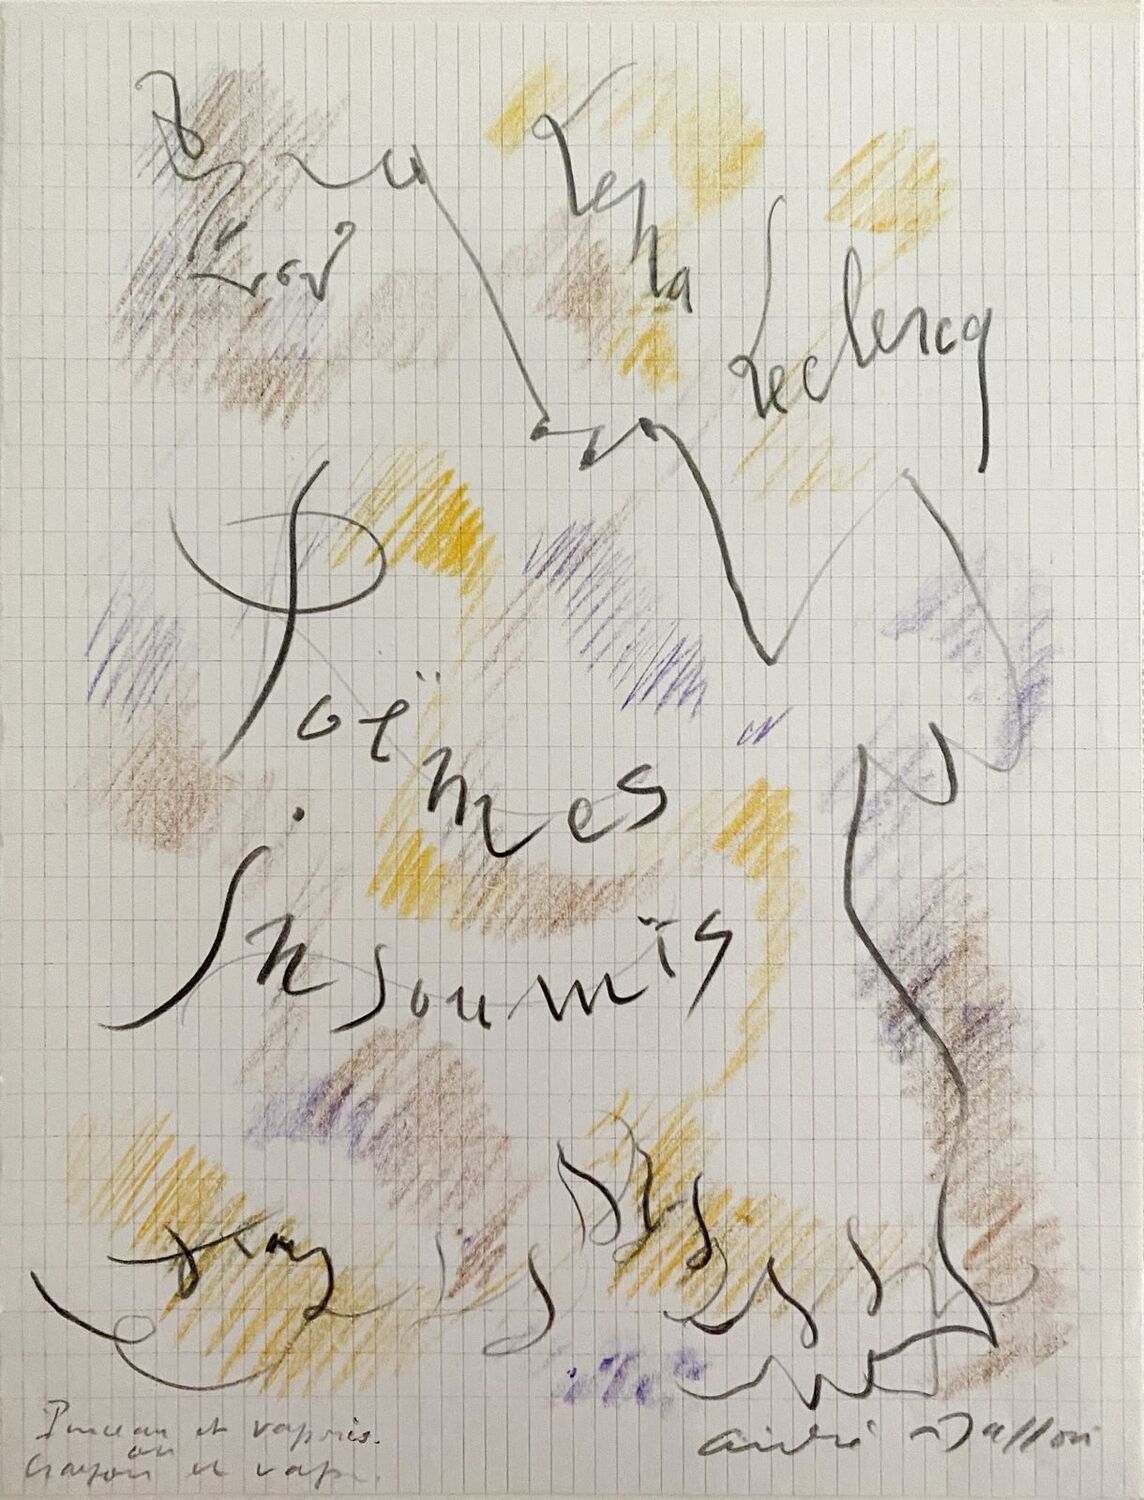 Lena
Leclercq
Poëmes
Insoumis
Pinceau et vaporis.
ou
Crayon et vap.
andré Masson